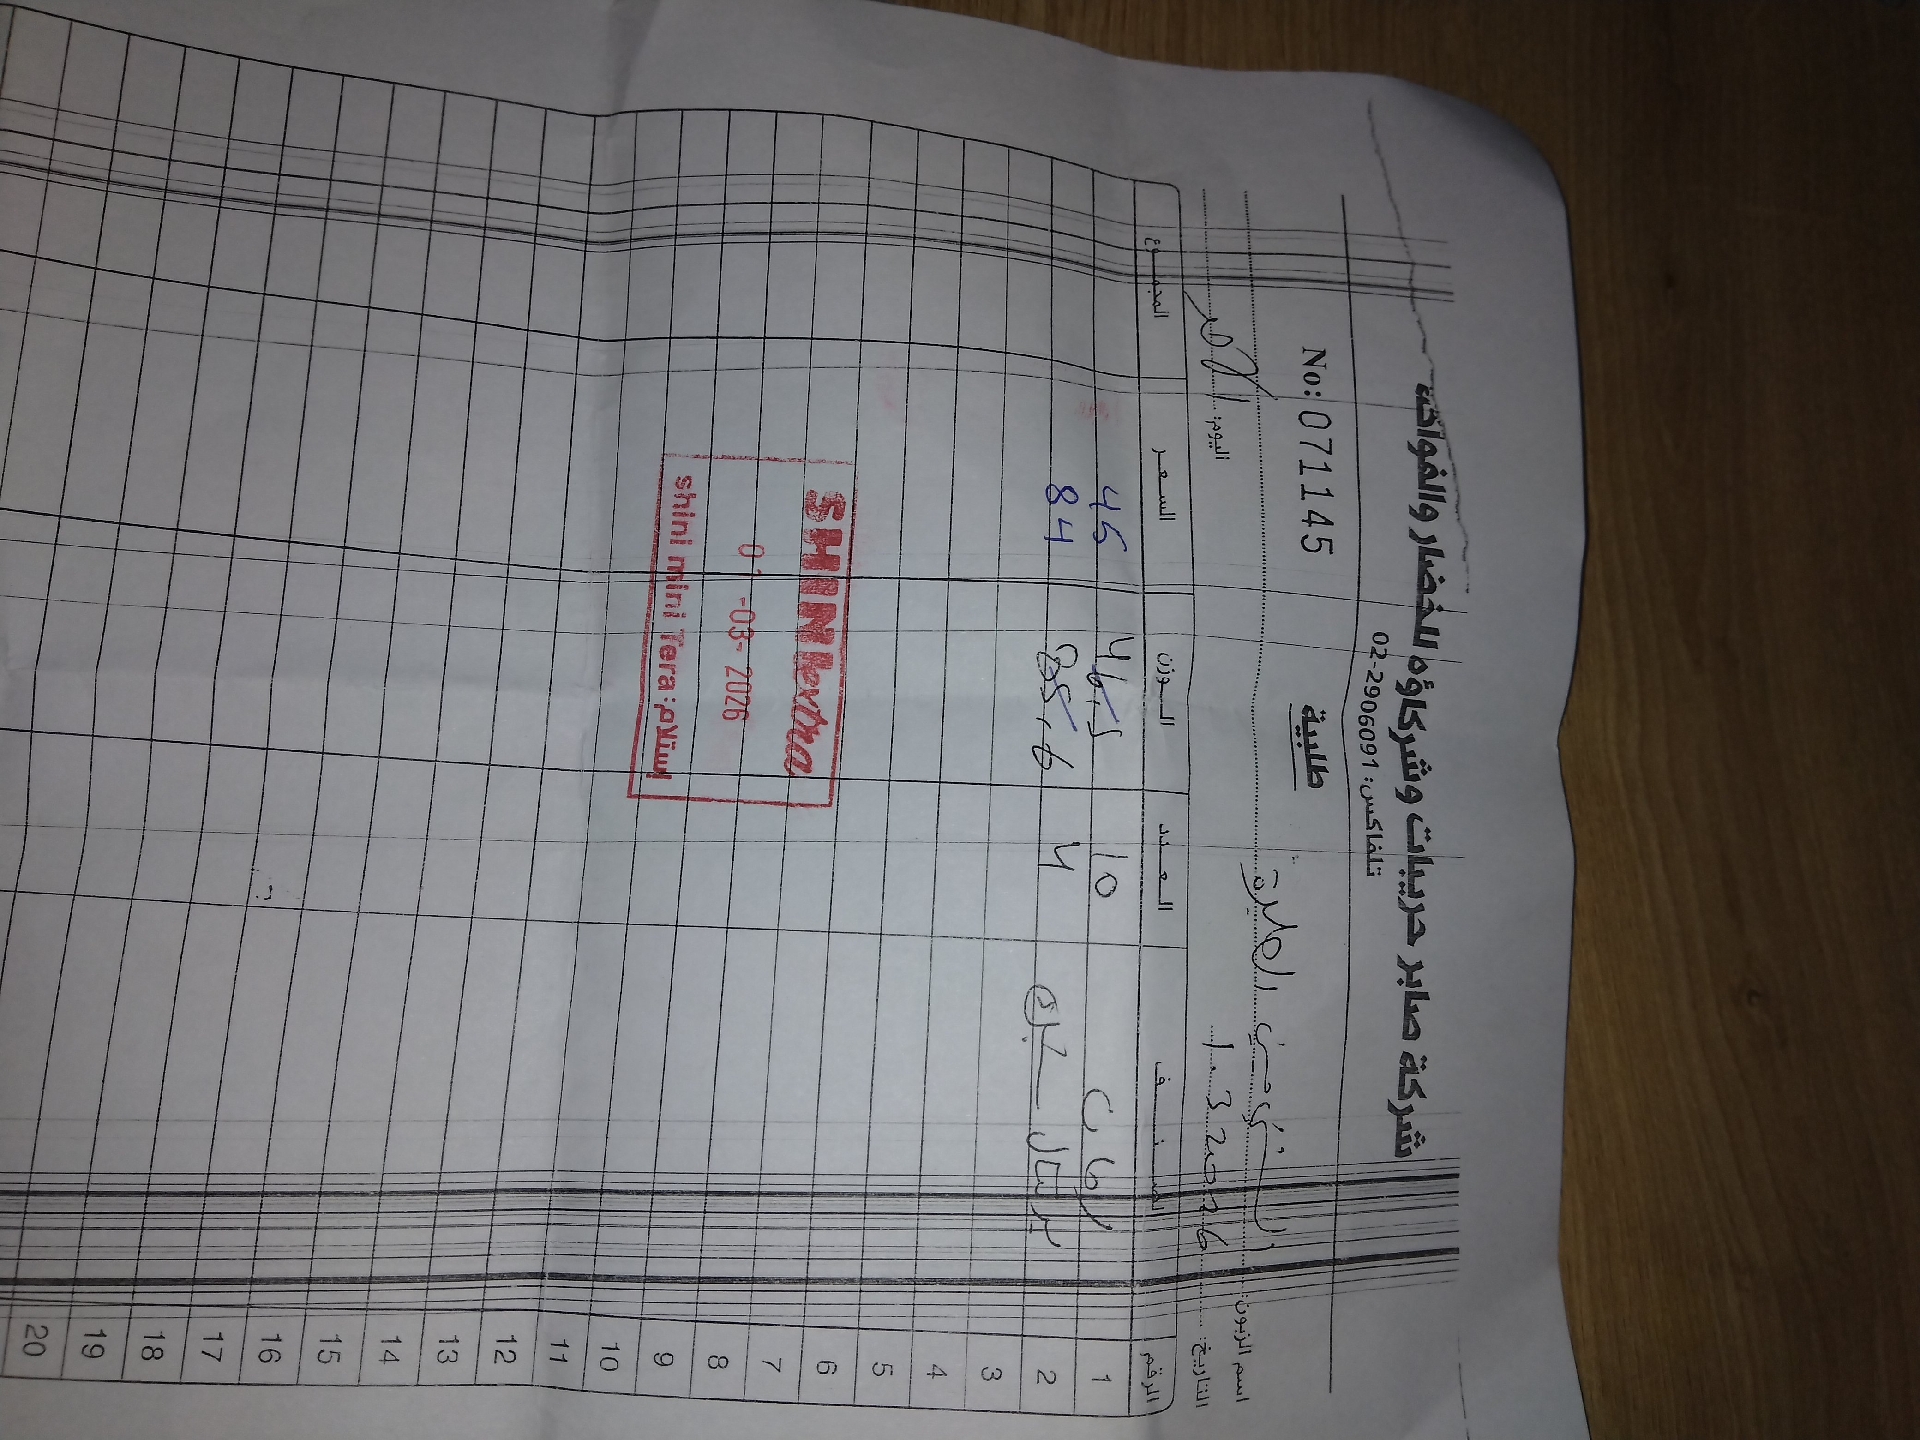 شركة صابر حريبات وشركاؤه للخضار والفواكه
تلفاكس: 02-2906091
No:071145
طلبية
اسم الزبون: الشني الطيرة
التاريخ: 1.3.2026 اليوم: الأحد
الرقم الصنف العدد الوزن السعر المجموع
1 10 46.5 45
2 برتقال 4 85.6 84
3
4
5
6
7
8
9
10
11
12
13
14
15
16
17
18
19
20
SHINI extra
01-03-2026
shini mini Tera : إستلام